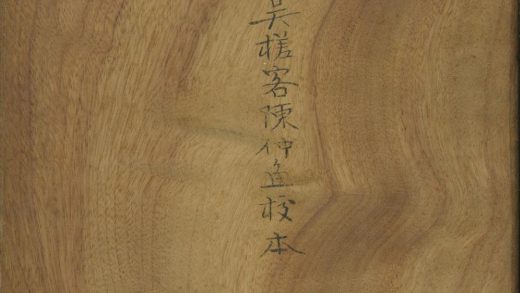 吳槎客陳仲魚校本